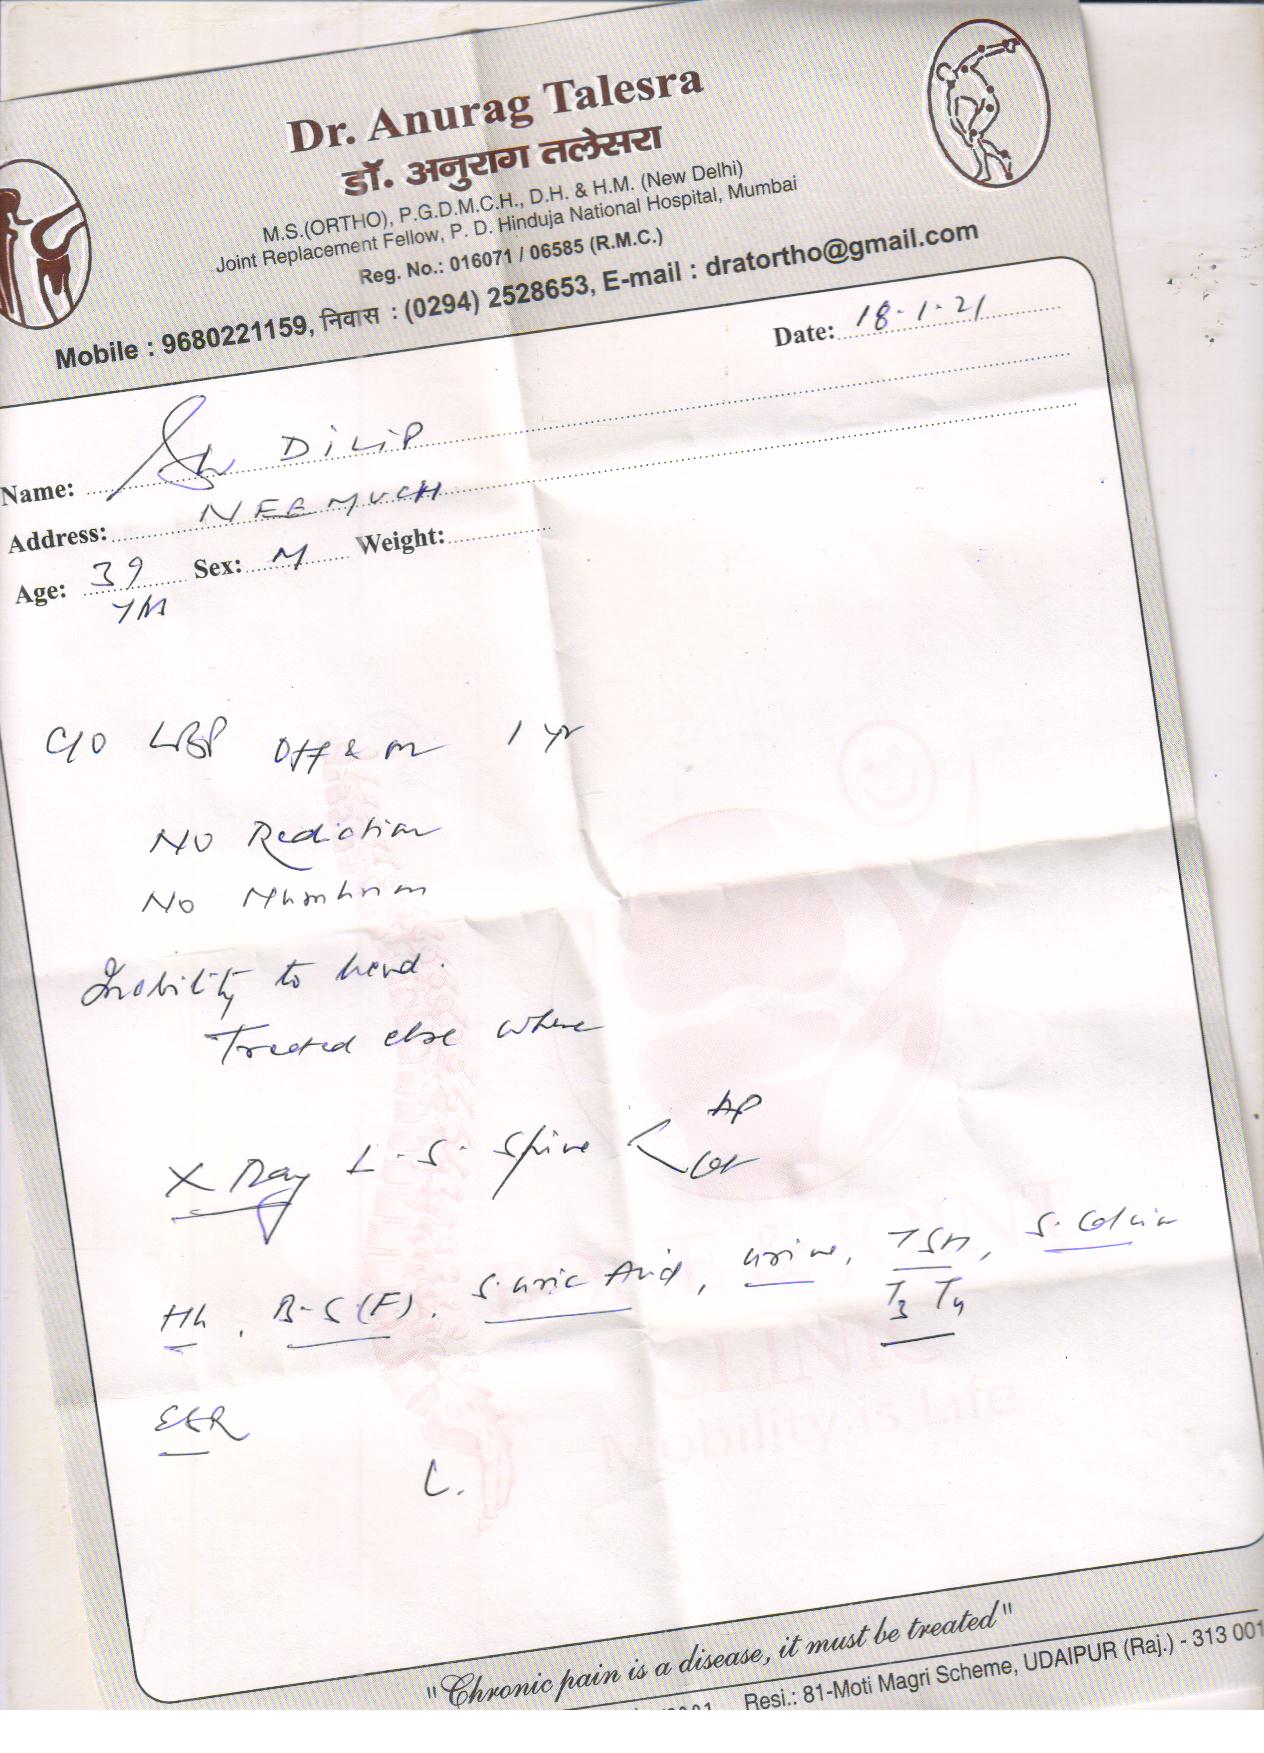 Dr. Anurag Talesra
डॉ. अनुराग तलेसरा
M.S.(ORTHO), P.G.D.M.C.H., D.H. & H.M. (New Delhi)
Joint Replacement Fellow, P. D. Hinduja National Hospital, Mumbai
Reg. No.: 016071 / 06585 (R.M.C.)
Mobile : 9680221159, निवास : (0294) 2528653, E-mail : dratortho@gmail.com
Date: 18-1-21
Name: Sh DILIP
Address: NEEMUCH
Age: 39 Sex: M Weight:
C/O LBP Off & on 1 yr
No Radiation
No Numbness
Inability to bend.
Treated else where
X Ray L-S-Spine < AP
Lat
Hb, B-S(F), S. uric Acid, urine, TSH, S. Calcium
T3 T4
ESR
CLINIC
Mobility is Life
"Chronic pain is a disease, it must be treated"
Resi.: 81-Moti Magri Scheme, UDAIPUR (Raj.) - 313 001